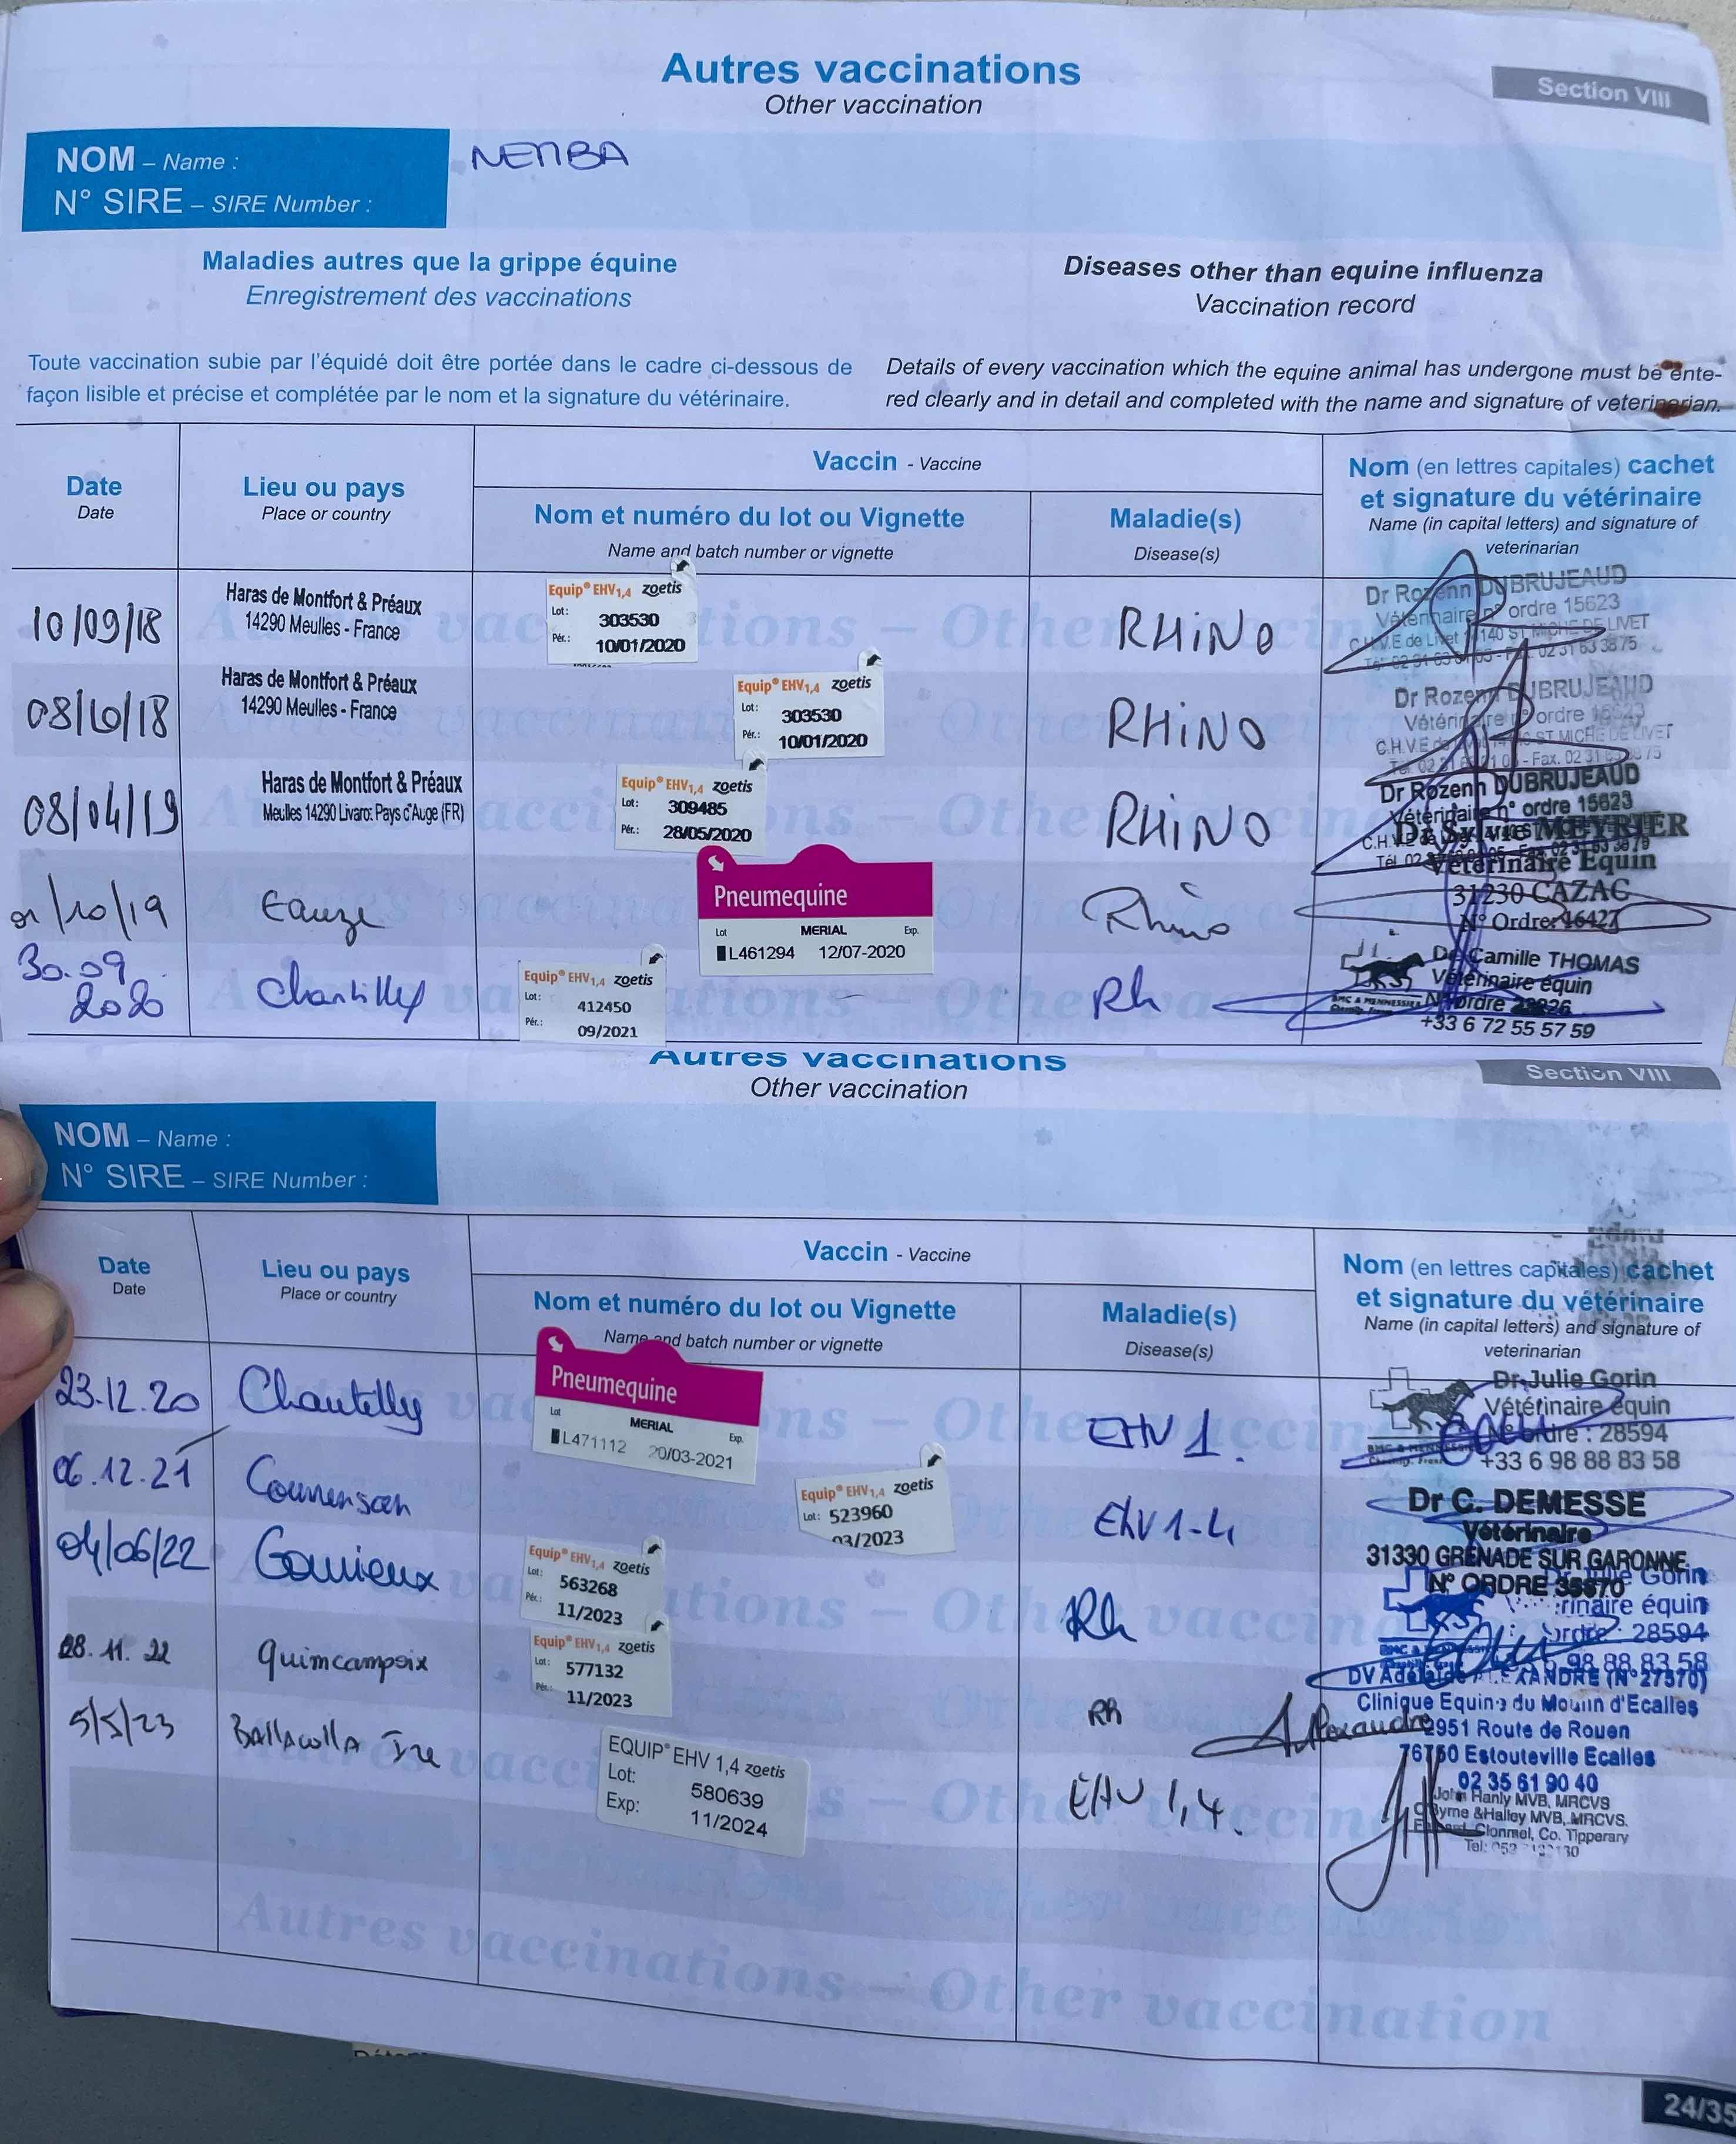 Autres vaccinations
Other vaccination
Section VIII
NOM – Name :
NEMBA
N° SIRE – SIRE Number :
Maladies autres que la grippe équine
Enregistrement des vaccinations
Diseases other than equine influenza
Vaccination record
Toute vaccination subie par l'équidé doit être portée dans le cadre ci-dessous de
façon lisible et précise et complétée par le nom et la signature du vétérinaire.
Details of every vaccination which the equine animal has undergone must be ente-
red clearly and in detail and completed with the name and signature of veterinarian.
Date
Date
Lieu ou pays
Place or country
Vaccin - Vaccine
Nom et numéro du lot ou Vignette
Name and batch number or vignette
Maladie(s)
Disease(s)
Nom (en lettres capitales) cachet
et signature du vétérinaire
Name (in capital letters) and signature of
veterinarian
10/09/18
Haras de Montfort & Préaux
14290 Meulles - France
Equip® EHV1,4 zoetis
Lot: 303530
Pér.: 10/01/2020
RHiNO
Dr Rozenn DUBRUJEAUD
Vétérinaire n° ordre 15623
08/10/18
Haras de Montfort & Préaux
14290 Meulles - France
Equip® EHV1,4 zoetis
Lot: 303530
Pér.: 10/01/2020
RHiNO
Dr Rozenn DUBRUJEAUD
Vétérinaire n° ordre 15623
08/04/19
Haras de Montfort & Préaux
Meulles 14290 Livarot Pays d'Auge (FR)
Equip® EHV1,4 zoetis
Lot: 309485
Pér.: 28/05/2020
RHiNO
Dr Rozenn DUBRUJEAUD
Vétérinaire n° ordre 15623
01/10/19
Eauze
Pneumequine
Lot MERIAL Exp.
L461294 12/07-2020
Rhino
Dr Sylvie MEYRIER
Vétérinaire Equin
31230 CAZAC
N° Ordre: 16427
30.09
2020
Chantilly
Equip® EHV1,4 zoetis
Lot: 412450
Pér.: 09/2021
Rh
Dr Camille THOMAS
Vétérinaire équin
N° ordre
+33 6 72 55 57 59
Autres vaccinations
Other vaccination
Section VIII
NOM – Name :
N° SIRE – SIRE Number :
Date
Date
Lieu ou pays
Place or country
Vaccin - Vaccine
Nom et numéro du lot ou Vignette
Name and batch number or vignette
Maladie(s)
Disease(s)
Nom (en lettres capitales) cachet
et signature du vétérinaire
Name (in capital letters) and signature of
veterinarian
23.12.20
Chantilly
Pneumequine
Lot MERIAL Exp.
L471112 20/03-2021
EHV 1.
Dr Julie Gorin
Vétérinaire équin
N° ordre : 28594
+33 6 98 88 83 58
06.12.21
Equip® EHV1,4 zoetis
Lot: 523960
03/2023
EHV 1-4
Dr C. DEMESSE
Vétérinaire
31330 GRENADE SUR GARONNE
N° ORDRE 35870
04/06/22
Gouvieux
Equip® EHV1,4 zoetis
Lot: 563268
Pér.: 11/2023
Rh
Gorin
équin
ordre : 28594
98 88 83 58
28.11.22
Quimcampoix
Equip® EHV1,4 zoetis
Lot: 577132
Pér.: 11/2023
Rh
DV Adélaïde ALEXANDRE (N°27570)
Clinique Equine du Moulin d'Ecalles
2951 Route de Rouen
76750 Estouteville Ecalles
02 35 61 90 40
5/5/23
Ballacolla Ire
EQUIP® EHV 1,4 zoetis
Lot: 580639
Exp: 11/2024
EHV 1,4.
John Hanly MVB, MRCVS
Byrne & Halley MVB, MRCVS.
Clonmel, Co. Tipperary
Autres vaccinations – Other vaccination
24/35